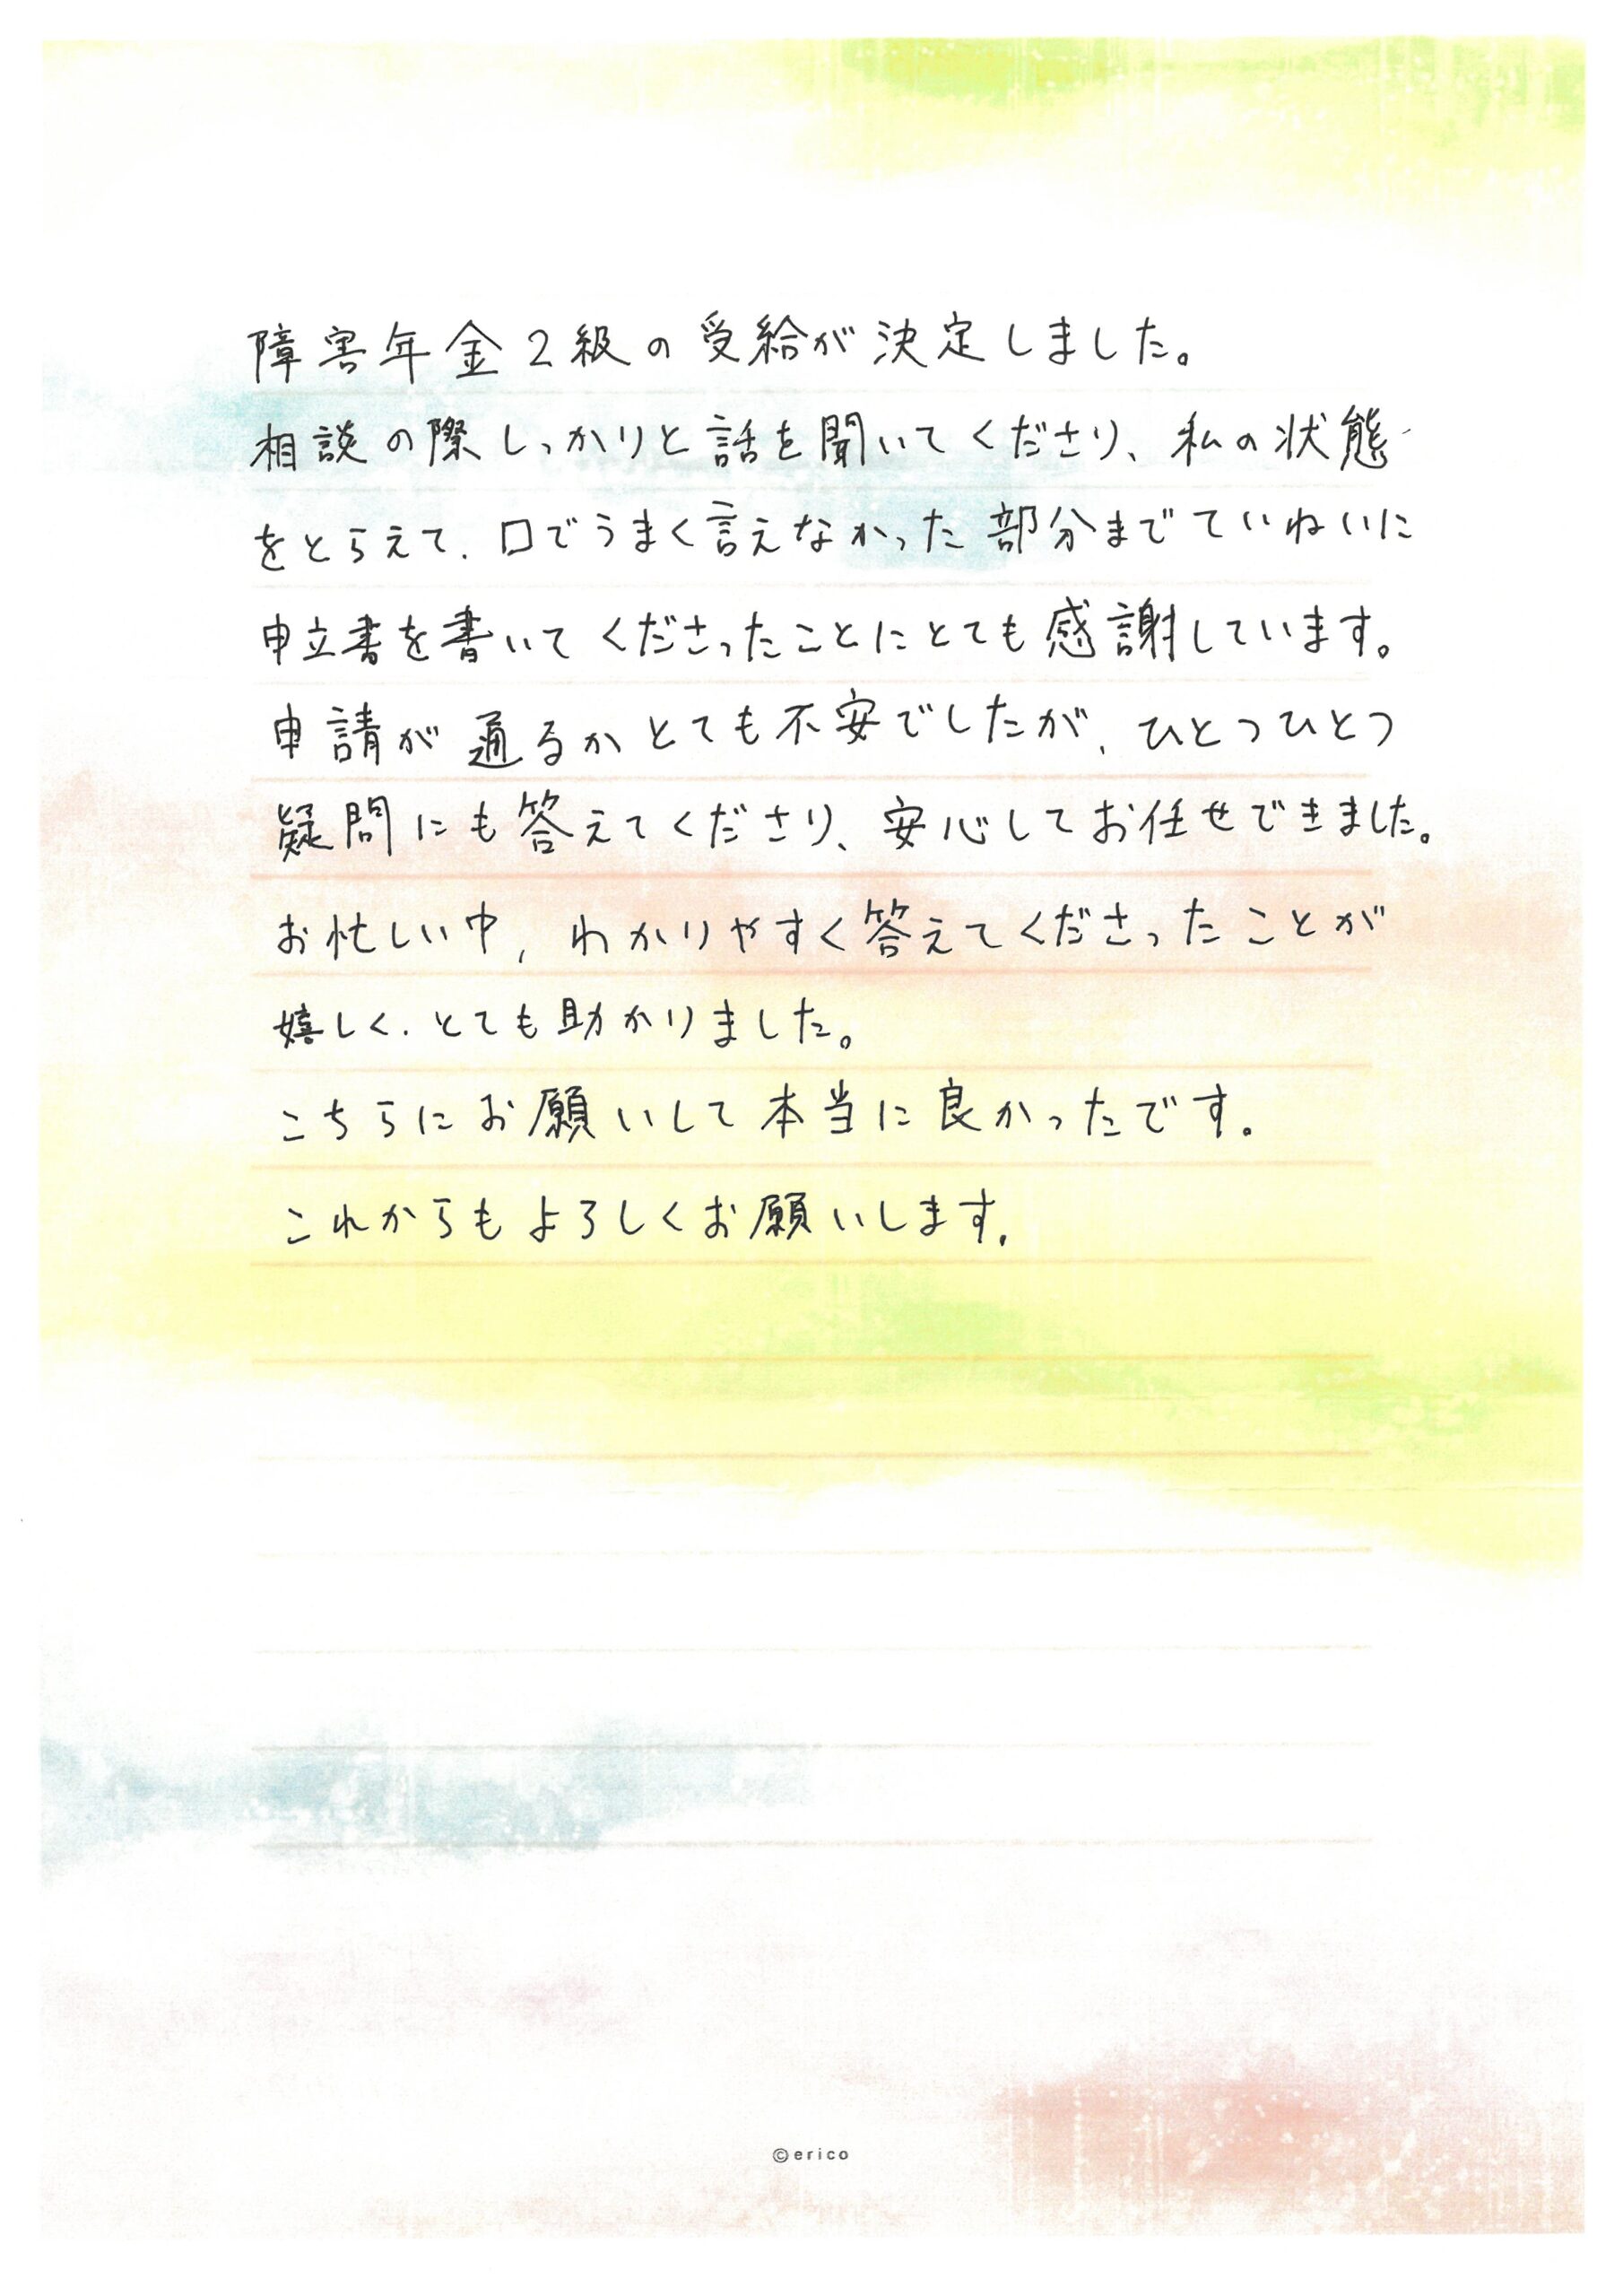 障害年金2級の受給が決定しました。
相談の際しっかりと話を聞いてくださり、私の状態
をとらえて、口でうまく言えなかった部分までていねいに
申立書を書いてくださったことにとても感謝しています。
申請が通るかとても不安でしたが、ひとつひとつ
疑問にも答えてくださり、安心してお任せできました。
お忙しい中、わかりやすく答えてくださったことが
嬉しく、とても助かりました。
こちらにお願いして本当に良かったです。
これからもよろしくお願いします。
©erico